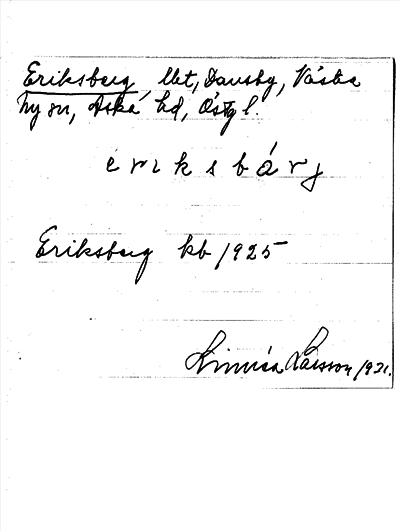 Eriksberg, lht, Dansby, Västra
Ny sn, Aska hd, Östg l.
e r i k s b á r j
Eriksberg kb 1925
Linnéa Larsson 1931.